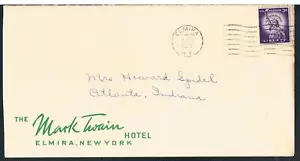 ELMIRA
N.Y.
Mrs Howard Lydel
Atlanta, Indiana
THE Mark Twain HOTEL
ELMIRA, NEW YORK